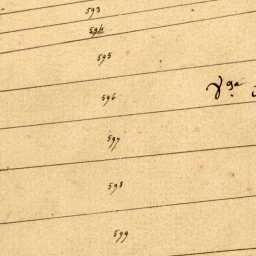 593
594
595
596
597
598
599